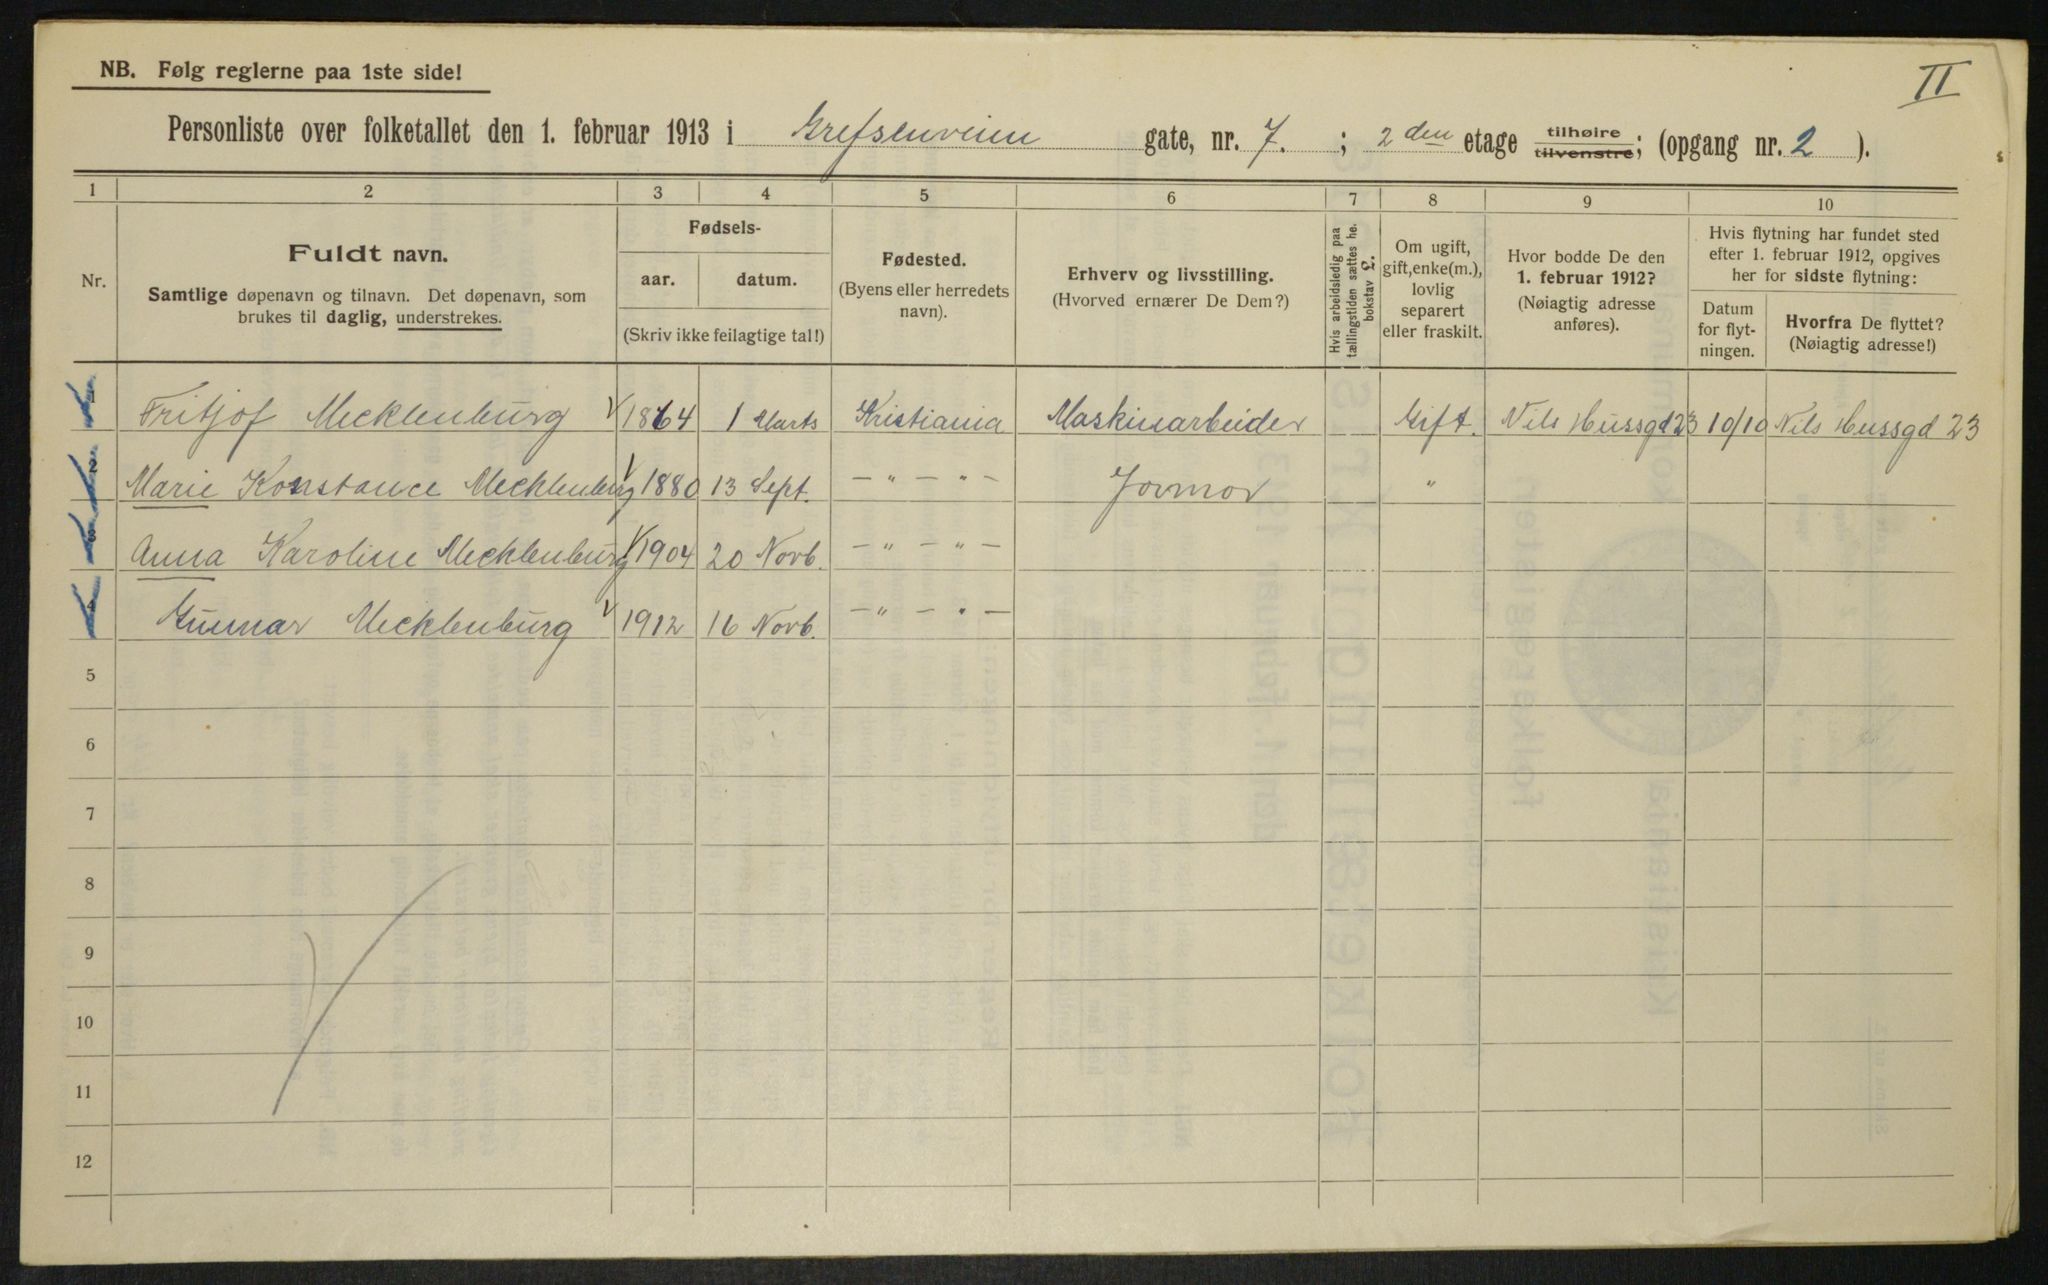 NB. Følg reglerne paa 1ste side!
II
Personliste over folketallet den 1. februar 1913 i Grefsenveien gate, nr. 7. ; 2 den etage tilhøire tilvenstre; (opgang nr. 2 ).
1 2 3 4 5 6 7 8 9 10
Nr.
Fuldt navn.
Samtlige døpenavn og tilnavn. Det døpenavn, som
brukes til daglig, understrekes.
Fødsels-
aar. datum.
(Skriv ikke feilagtige tal!)
Fødested.
(Byens eller herredets
navn).
Erhverv og livsstilling.
(Hvorved ernærer De Dem?)
Hvis arbeidsledig paa
tællingstiden sættes he.
bokstav £.
Om ugift,
gift, enke(m.),
lovlig
separert
eller fraskilt.
Hvor bodde De den
1. februar 1912?
(Nøiagtig adresse
anføres).
Hvis flytning har fundet sted
efter 1. februar 1912, opgives
her for sidste flytning:
Datum
for flyt-
ningen.
Hvorfra De flyttet?
(Nøiagtig adresse!)
1 Fritjof Mecklenburg 1864 1 Marts Kristiania Maskinarbeider Gift. Nils Hussgd 23 10/10 Nils Hussgd 23
2 Marie Konstance Mecklenburg 1880 13 Sept. — " — " — Jormor "
3 Anna Karoline Mecklenburg 1904 20 Novb. — " — " —
4 Gunnar Mecklenburg 1912 16 Novb. — " — " —
5
6
7
8
9
10
11
12